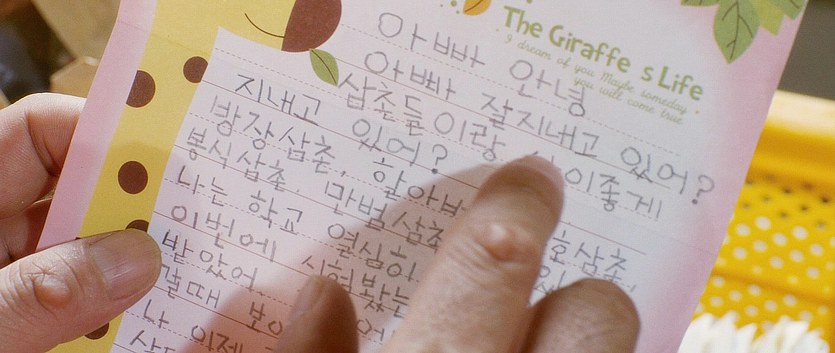 The Giraffe s Life
I dream of you Maybe someday
you will come true
아빠 안녕
아빠 잘지내고 있어?
삼촌들이랑 사이좋게
지내고 있어?
방장삼촌, 할아버
봉식삼촌, 만범삼촌 호삼촌
나는 학교 열심히
이번에 시험봤는
받았어
걸때
나 이제